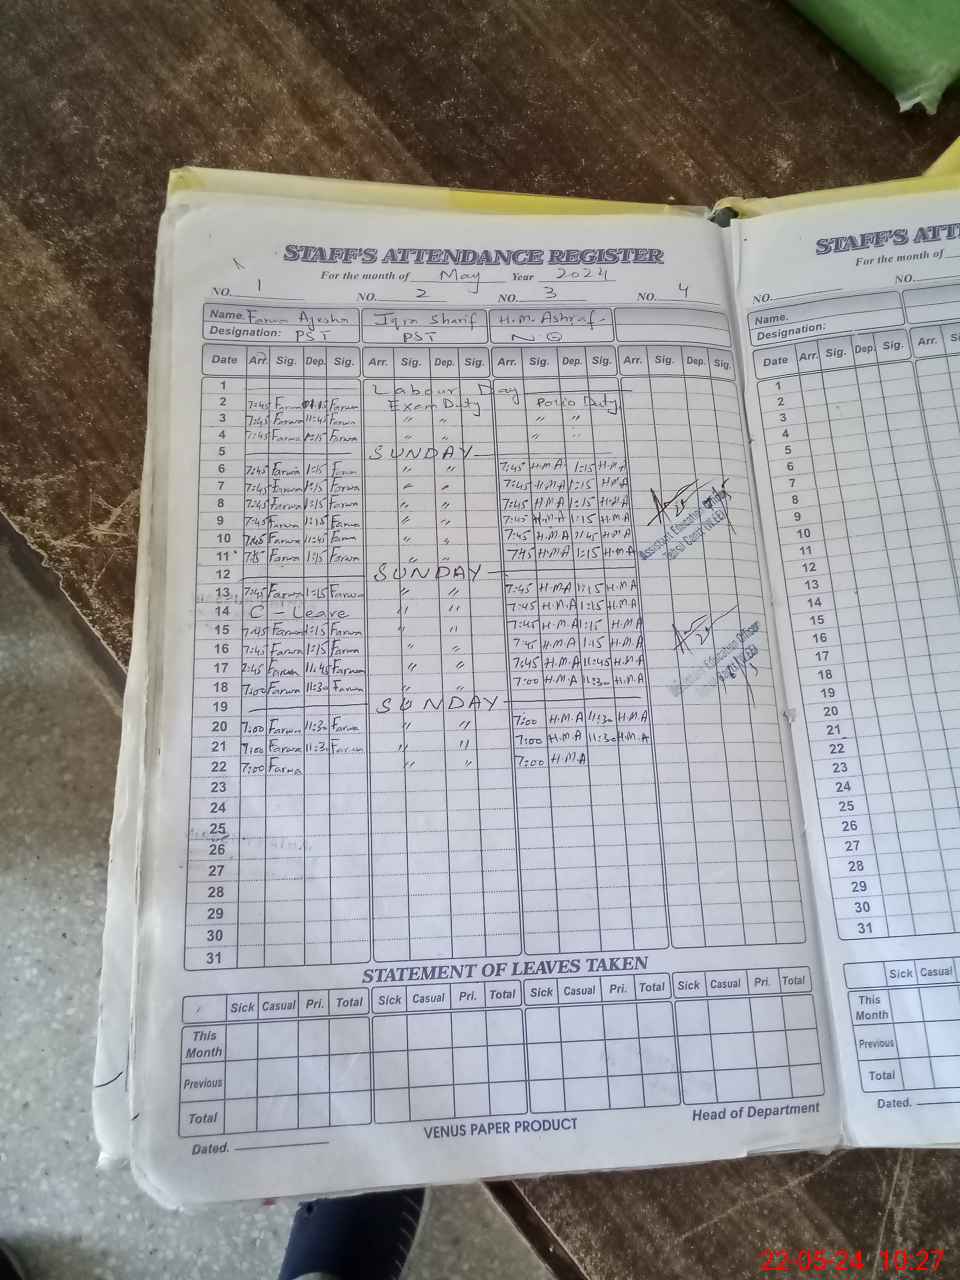 STAFF'S ATTENDANCE REGISTER
For the month of May Year 2024
NO. 1 NO. 2 NO. 3 NO. 4
Name. Farwa Ayesha Iqra Sharif H.M. Ashraf
Designation: PST PST N.Q
Date Arr. Sig. Dep. Sig. Arr. Sig. Dep. Sig. Arr. Sig. Dep. Sig. Arr. Sig. Dep. Sig.
1 Labour Day
2 7:45 Farwa Farwa Exam Duty Polio Duty
3 7:45 Farwa 11:45 Farwa " " " "
4 7:45 Farwa 1:15 Farwa " " " "
5 SUNDAY
6 7:45 Farwa 1:15 Farwa " " 7:45 H.M.A 1:15 H.M.A
7 7:45 Farwa 1:15 Farwa " " 7:45 H.M.A 1:15 H.M.A
8 7:45 Farwa 1:15 Farwa " " 7:45 H.M.A 1:15 H.M.A
9 7:45 Farwa 1:15 Farwa " " 7:45 H.M.A 1:15 H.M.A
10 7:45 Farwa 11:45 Farwa " " 7:45 H.M.A 11:45 H.M.A
11 7:45 Farwa 1:15 Farwa " " 7:45 H.M.A 1:15 H.M.A
Assistant Education Officer
12 SUNDAY
13 7:45 Farwa 1:15 Farwa " " 7:45 H.M.A 1:15 H.M.A
14 C - Leave " " 7:45 H.M.A 1:15 H.M.A
15 7:45 Farwa 1:15 Farwa " " 7:45 H.M.A 1:15 H.M.A
16 7:45 Farwa 1:15 Farwa " " 7:45 H.M.A 1:15 H.M.A
17 7:45 Farwa 11:45 Farwa " " 7:45 H.M.A 11:45 H.M.A
18 7:00 Farwa 11:30 Farwa " " 7:00 H.M.A 11:30 H.M.A
Education Officer
19 SUNDAY
20 7:00 Farwa 11:30 Farwa " " 7:00 H.M.A 11:30 H.M.A
21 7:00 Farwa 11:30 Farwa " " 7:00 H.M.A 11:30 H.M.A
22 7:00 Farwa " " 7:00 H.M.A
23
24
25
26
27
28
29
30
31
STATEMENT OF LEAVES TAKEN
Sick Casual Pri. Total Sick Casual Pri. Total Sick Casual Pri. Total Sick Casual Pri. Total
This
Month
Previous
Total
Dated.
VENUS PAPER PRODUCT
Head of Department
STAFF'S ATT
For the month of
NO. NO.
Name.
Designation:
Date Arr. Sig. Dep. Sig. Arr.
1
2
3
4
5
6
7
8
9
10
11
12
13
14
15
16
17
18
19
20
21
22
23
24
25
26
27
28
29
30
31
Sick Casual
This
Month
Previous
Total
Dated.
22-05-24 10:27